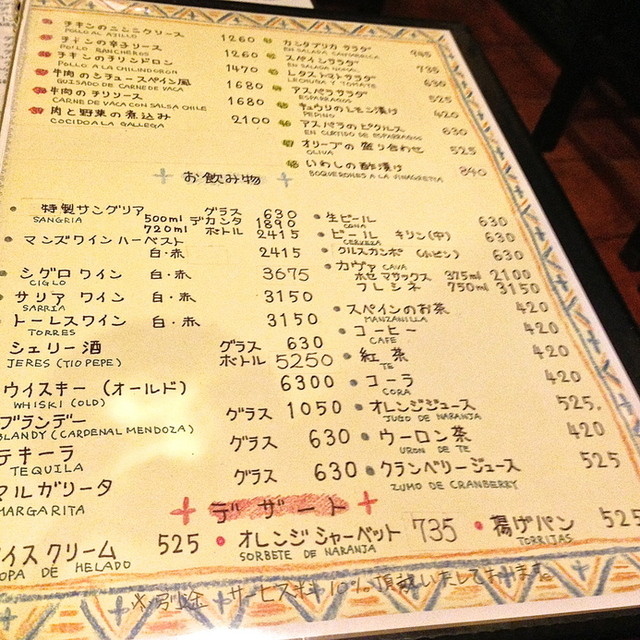 チキンのニンニクソース 1260
POLLO AL AJILLO
チキンの辛子ソース 1260
POLLO RANCHEROS
チキンのチリンドロン 1470
POLLO A LA CHILINDORON
牛肉のシチュースペイン風 1680
GUISADO DE CARNE DE VACA
牛肉のチリソース 1680
CARNE DE VACA CON SALSA CHILE
肉と野菜の煮込み 2100
COCIDO A LA GALLEGA
カンタブリカ サラダ 945
EN SALADA CANTABLICA
スペインサラダ 735
EN SALADA
レタストマトサラダ 630
LECHUGA Y TOMATE
アスパラサラダ 525
ESPARRAGOS
キュウリのレモン漬け 420
PEPINO
アスパラのピクルス 630
EN CURTIDO DE ESPARRAGOS
オリーブの盛り合わせ 525
OLIVA
いわしの酢漬け 840
BOQUERONES A LA VINAGRETTA
お飲み物
特製サングリア グラス 630
SANGRIA 500ml デカンタ 1890
720ml ボトル 2415
マンズワイン ハーベスト
白・赤 2415
シグロ ワイン 白・赤 3675
CIGLO
サリア ワイン 白・赤 3150
SARRIA
トーレスワイン 白・赤 3150
TORRES
シェリー酒 グラス 630
JERES (TIO PEPE) ボトル 5250
ウイスキー (オールド) 6300
WHISKI (OLD)
ブランデー グラス 1050
BLANDY (CARDENAL MENDOZA)
テキーラ グラス 630
TEQUILA
マルガリータ グラス 630
MARGARITA
生ビール 630
CANA
ビール キリン(中) 630
CERVEZA
クルスカンポ (小ビン) 630
カヴァ CAVA
ホセ マサックス 375ml 2100
フレシネ 750ml 3150
スペインのお茶 420
MANZANILLA
コーヒー 420
CAFE
紅茶 420
TE
コーラ 420
CORA
オレンジジュース 525.
JUGO DE NARANJA
ウーロン茶 420
URON DE TE
クランベリージュース 525
ZUMO DE CRANBERRY
デザート
イスクリーム 525
OPA DE HELADO
オレンジシャーベット 735
SORBETE DE NARANJA
揚げパン 525
TORRIJAS
※別途 サービス料10%頂戴いたしております。